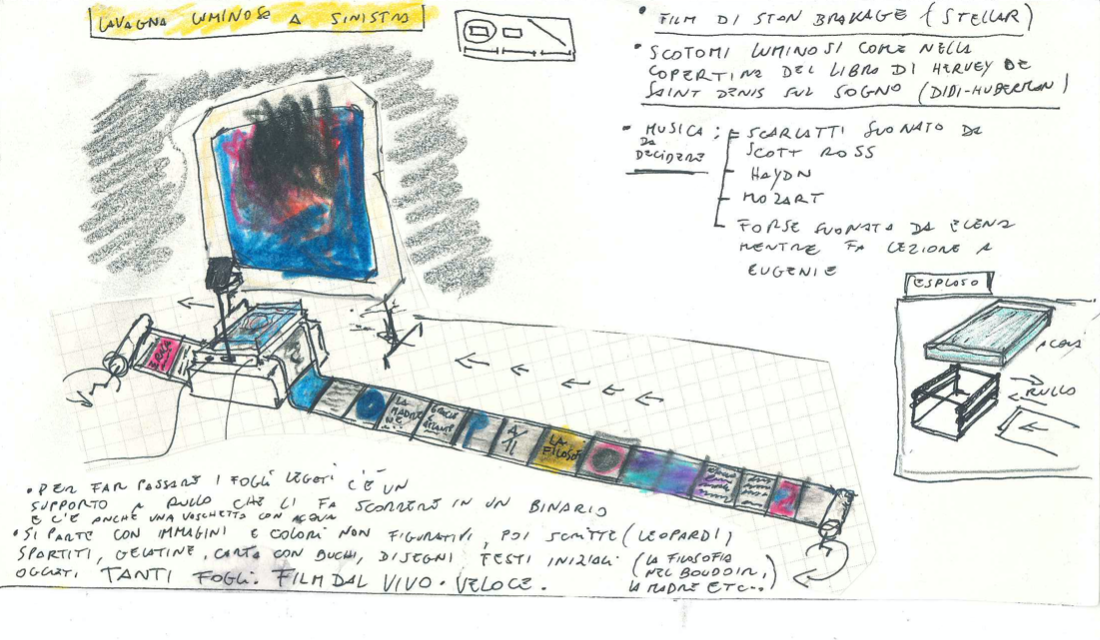 LAVAGNA LUMINOSA A SINISTRA
• FILM DI STAN BRAKAGE (STELLAR)
• SCOTOMI LUMINOSI COME NELLA
COPERTINA DEL LIBRO DI HERVEY DE
SAINT DENIS SUL SOGNO (DIDI-HUBERMAN)
• MUSICA :
DA
DECIDERE
SCARLATTI SUONATO DA
SCOTT ROSS
HAYDN
MOZART
FORSE SUONATA DA ELENA
MENTRE FA LEZIONE A
EUGENIE
ESPLOSO
RULLO
LA
MADRE
LA
FILOSOF
• PER FAR PASSARE I FOGLI LEGATI C'È UN
SUPPORTO A RULLO CHE LI FA SCORRERE IN UN BINARIO
E C'È ANCHE UNA VASCHETTA CON ACQUA
• SI PARTE CON IMMAGINI E COLORI NON FIGURATIVI, POI SCRITTE (LEOPARDI)
SPARTITI, GELATINE, CARTA CON BUCHI, DISEGNI TESTI INIZIALI (LA FILOSOFIA
NEL BOUDOIR,
LA MADRE ETC...)
OGGETTI TANTI FOGLI. FILM DAL VIVO. VELOCE.